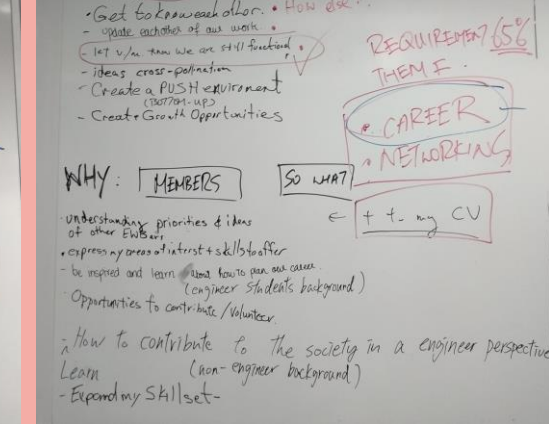 • Get to know each other. • How
- update each other of our work •
- let u/m know we are still functional
- ideas cross-pollination
- Create a PUSH enviroment
(BOTTOM-UP)
- Create Growth Opportunities
REQUIREMENT 65%
THEME.
• CAREER
• NETWORKING
WHY: MEMBERS
SO WHAT?
← + t- my CV
- understanding priorities & ideas
of other
• express my areas of interst + skills to offer
- be inspired and learn about how to plan our career.
(engineer students background)
- Opportunities to contribute / Volunteer.
- How to contribute to the society in a engineer perspective
Learn (non-engineer background)
- Expand my skill set -